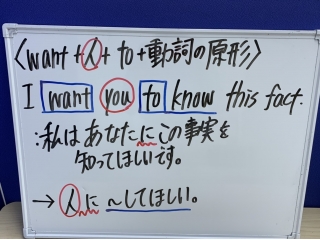 〈want+人+to+動詞の原形〉
I want you to know this fact.
:私はあなたにこの事実を
知ってほしいです。
→ 人に 〜してほしい。